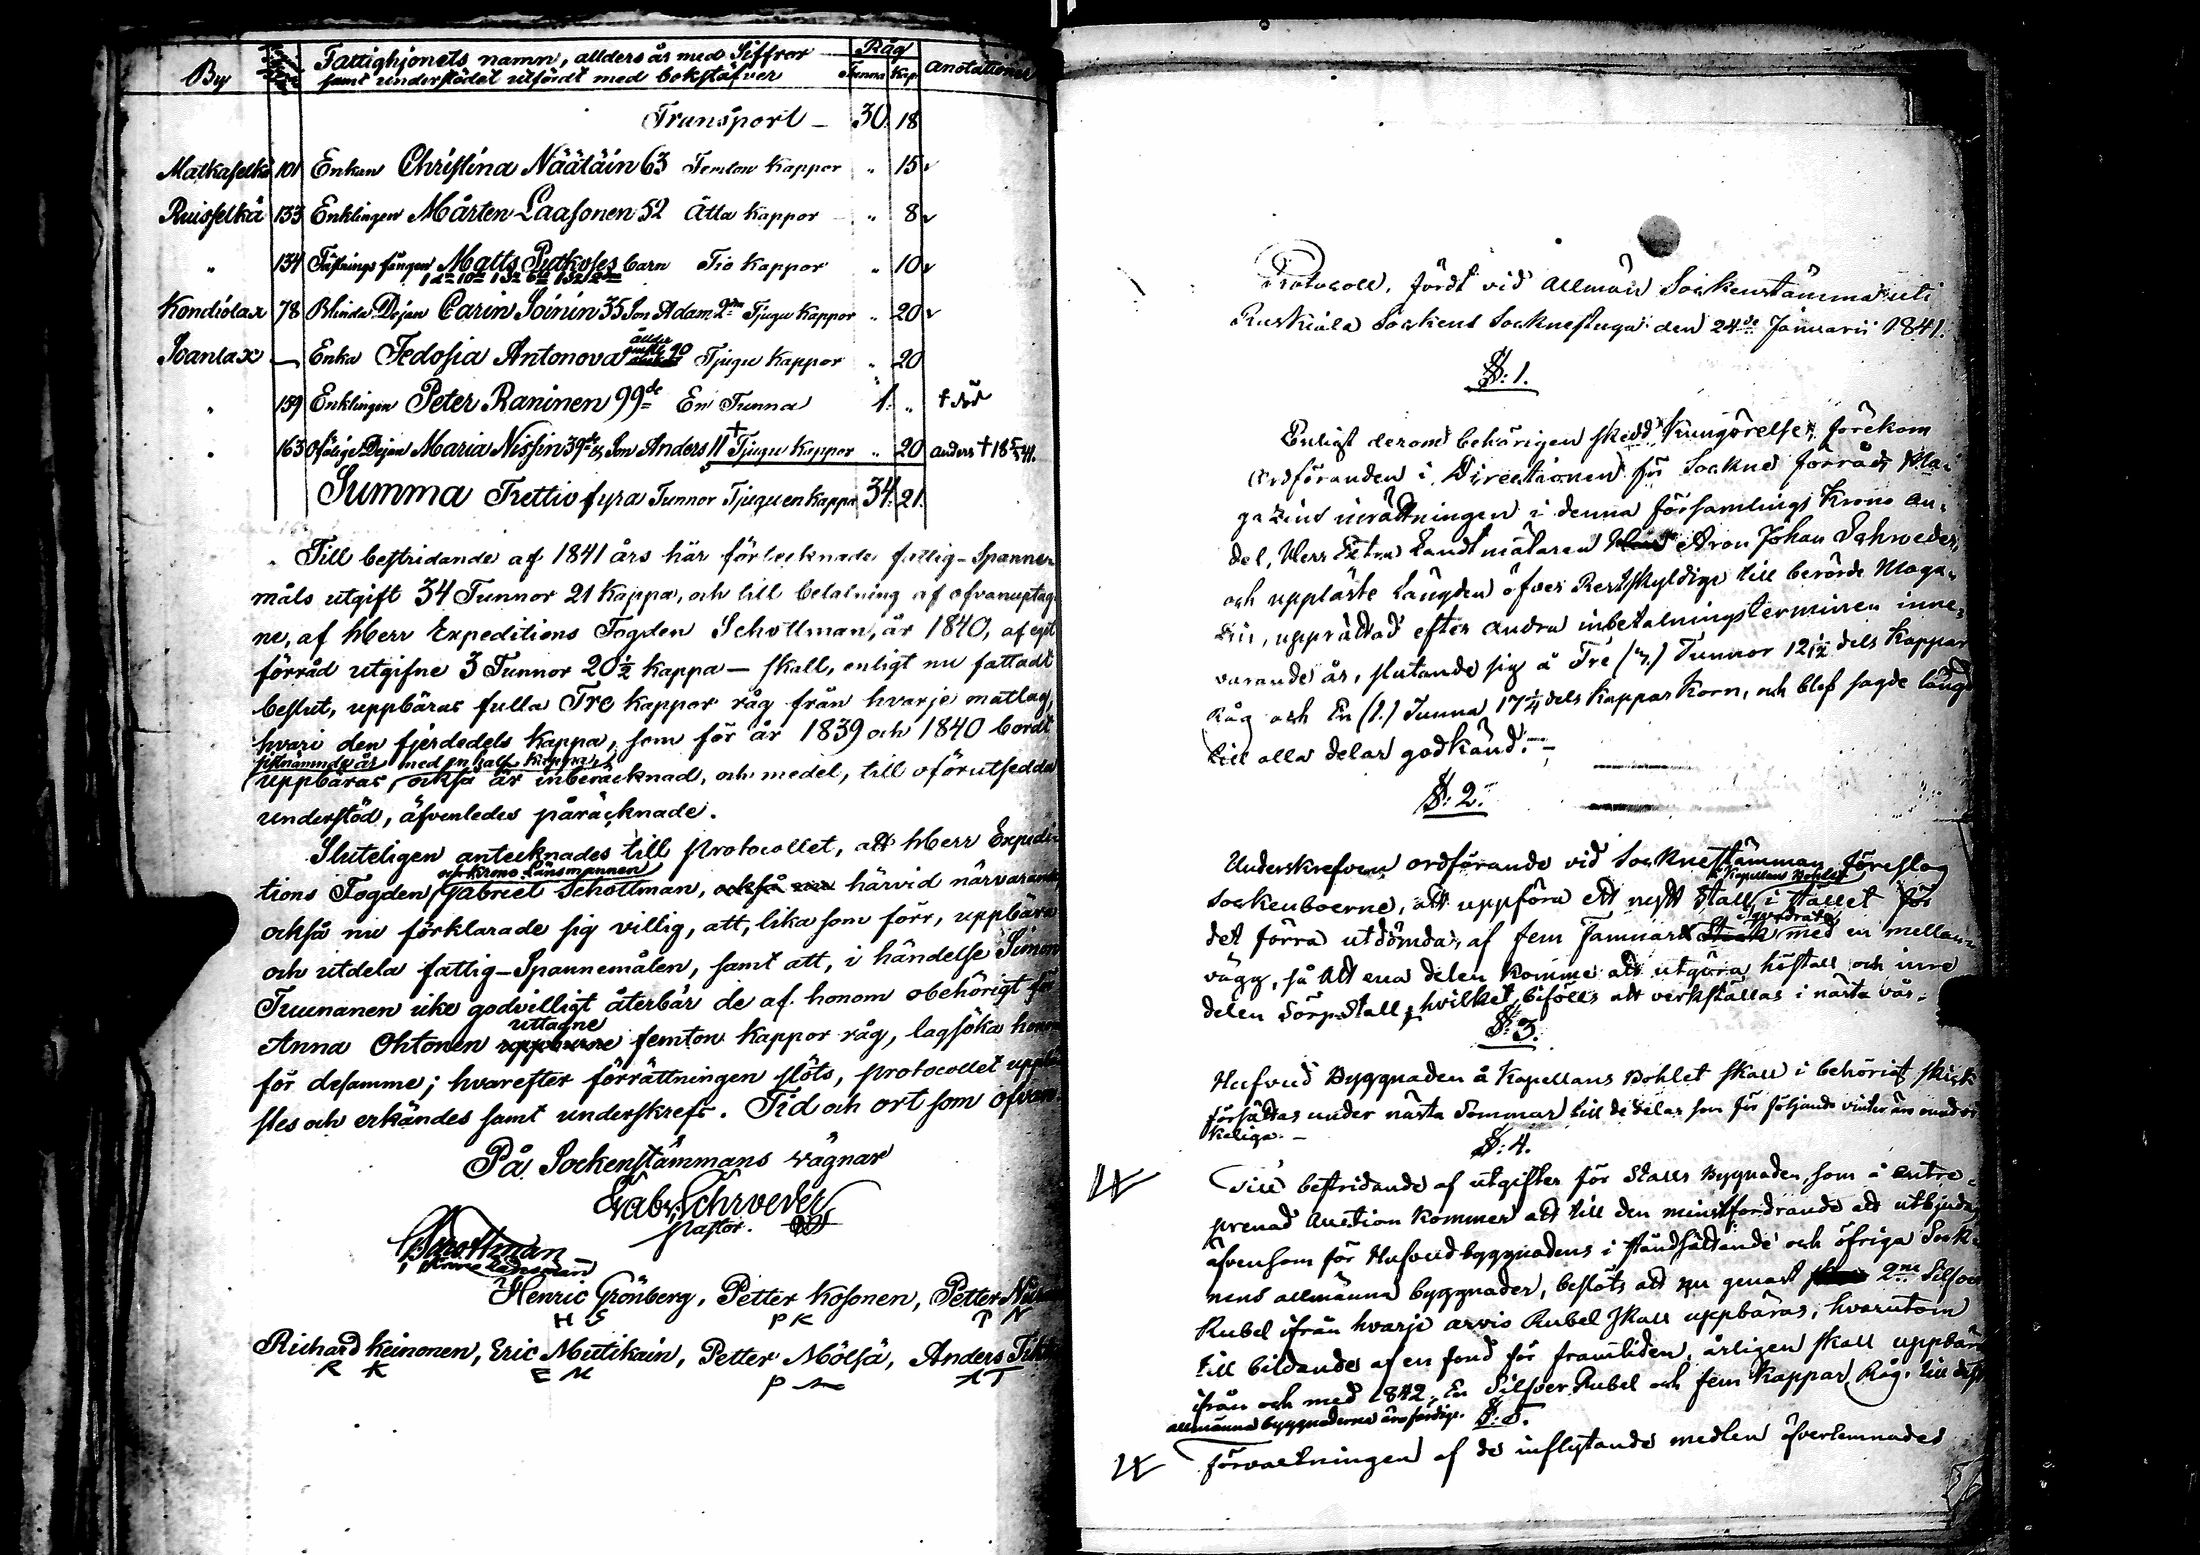 By Fattighjonets namn, allders år med Siffror Råg anotationer
samt understödet utfördt med bokstäfver Tunna Kap.
Transport — 30. 18
Matkaselkä 101 Enkan Christina Näätäin 63 Femton Kappor " 15 v
Ruisselkä 133 Enklingen Mårten Laasonen 52 Åtta Kappor — " 8 v
" 134 Fästnings fången Matts Putkoses barn Tio Kappor " 10 v
Kondiolax 78 Blinda Pigan Carin Soinin 35 Son Adam 2 Tjugu Kappor " 20 v
Soanlax — Enka Fedosia Antonova ålder 90 Tjugu Kappor " 20
" 159 Enklingen Peter Raninen 99de En Tunna 1. " † död
" 163 Ofärige Pigan Maria Nissin 39 & Son Anders 11 † Tjugu Kappor " 20 anders † 18 41.
Summa Trettiofyra Tunnor Tjuguen Kappa 34. 21.
Till bestridande af 1841 års här förtecknade fattig-Spanne-
måls utgift 34 Tunnor 21 Kappa, och till betalning af ofvanuptag-
ne, af Herr Expeditions Fogden Schottman, år 1840, af eget
förråd utgifne 3 Tunnor 20½ kappa — skall, enligt nu fattadt
beslut, uppbäras fulla Tre kappor råg från hvarje matlag,
hvari den fjerdedels Kappa, som för år 1839 och 1840 bordt
sistnämnde år med en half Kappa
uppbäras, också är inberäcknad, och medel, till oförutsedda
understöd, äfvenledes påräcknade.
Sluteligen antecknades till Protocollet, att Herr Expedi-
och Krono Länsmannen
tions Fogden Gabriel Schottman, också härvid närvarande
också nu förklarade sig villig, att, lika som förr, uppbära
och utdela fattig-Spannemålen, samt att, i händelse Simon
Tuunanen icke godvilligt återbär de af honom obehörigt för
uttagne
Anna Ohtonen uppburne femton kappor råg, lagsöka honom
för desamme; hvarefter förrättningen slöts, protocollet upplä-
stes och erkändes samt underskrefs. Tid och ort som ofvan
På Sockenstämmans vägnar
Gabr. Schrveder
Pastor.
Schottman
Krono Länsman
Henric Grönberg, Petter Kosonen, Petter
H G P K P N
Richard Keinonen, Eric Mutikain, Petter Mölsä, Anders
R K E M P M A T
Protocoll, fördt vid Allmän Sockenstämma uti
Ruskiala Sockens Socknestuga den 24de Januarii 1841.
§: 1.
Enligt derom behörigen skedd Kungörelse, förekom
Ordföranden i Directionen för Sockne förråds Ma-
gazins inrättningen i denna församlings Krono an-
del, Herr Extra Landtmätaren Aron Johan Schroeder,
och uppläste Längden öfver Restskyldige till berörde Maga-
zin, upprättad efter andra inbetalningsterminen inne-
varande år, slutande sig å Tre (3.) Tunnor 12 1/2 dels Kappar
Råg och En (1.) Tunna 17 1/4 dels Kappar Korn, och blef sagde längd
till alla delar godkänd.—
§: 2.
Underskrefven ordförande vid Socknestämman föreslog
Kapellans Bohlet
Sockenboerne, att uppföra ett nytt Stall i stället för
qvadrate
det förra utdömda, af fem Famnars med en mellan-
vägg, så att ena delen komme att utgöra höstall och inre
delen Sörp-Stall, hvilket bifölls att verkställas i nästa vår.
§: 3.
Hufvud Byggnaden å Kapellans Bohlet skall i behörigt skick
försättas under nästa Sommar till de delar som för följande vinter äro oundvi-
keliga.—
§: 4.
Till bestridande af utgifter för Stalls Byggnaden, som å entre-
prenad Auction kommer att till den minstfordrande att utbjudas
äfvensom för Hufvudbyggnadens i ståndsättande och öfriga Sock-
nens allmänna byggnader, beslöts att nu genast 2ne Silfver
Rubel ifrån hvarje arvio Rubel skall uppbäras, hvarutom
till bildande af en fond för framtiden, årligen skall uppbäras
ifrån och med 1842, En Silfver Rubel och fem Kappar Råg, till dess
allmänna byggnaderne äro färdige. §: 5.
Förvaltningen af de inflytande medlen öfverlemnades